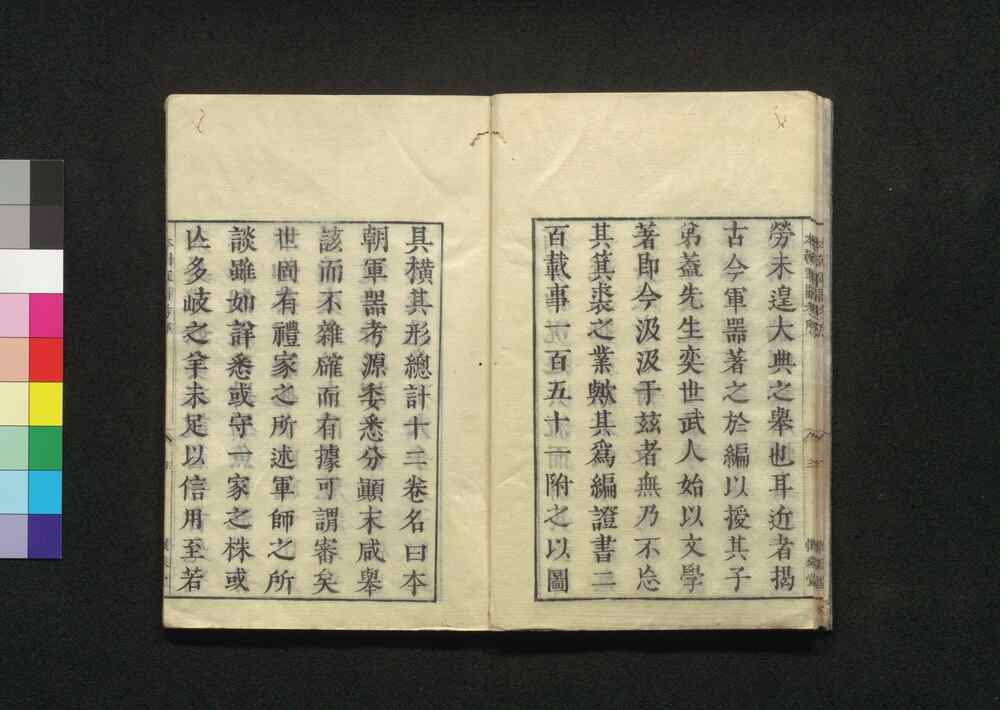 勞未遑大典之舉也耳近者揭
古今軍器著之於編以授其子
弟蓋先生奕世武人始以文學
著即今汲汲于茲者無乃不忘
其箕裘之業歟其爲編證書二
百載事一百五十一附之以圖
具橫其形總計十二卷名曰本
朝軍器考源委悉分顚末咸舉
該而不雜確而有據可謂審矣
世固有禮家之所述軍師之所
談雖如詳悉或守一家之株或
亾多岐之羊未足以信用至若